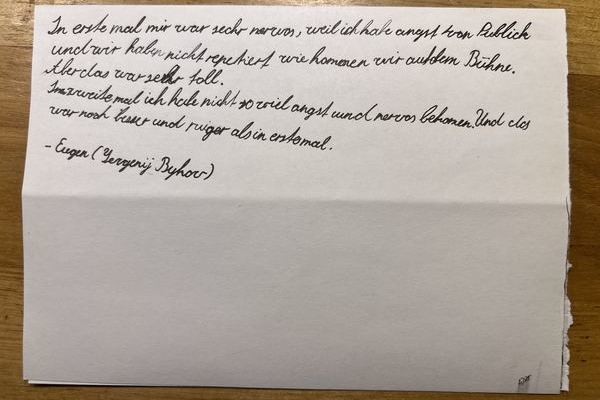 In erste mal mir war sechr nervos, weil ich habe angst von Publick
und wir haben nicht repetiert wie komenen wir auf dem Bühne.
Aber das war sehr toll.
Im zweite mal ich habe nicht so viel angst und nervos bekomen. Und das
war noch besser und ruiger als in erste mal.
- Eugen (Yevgenij Bykov)